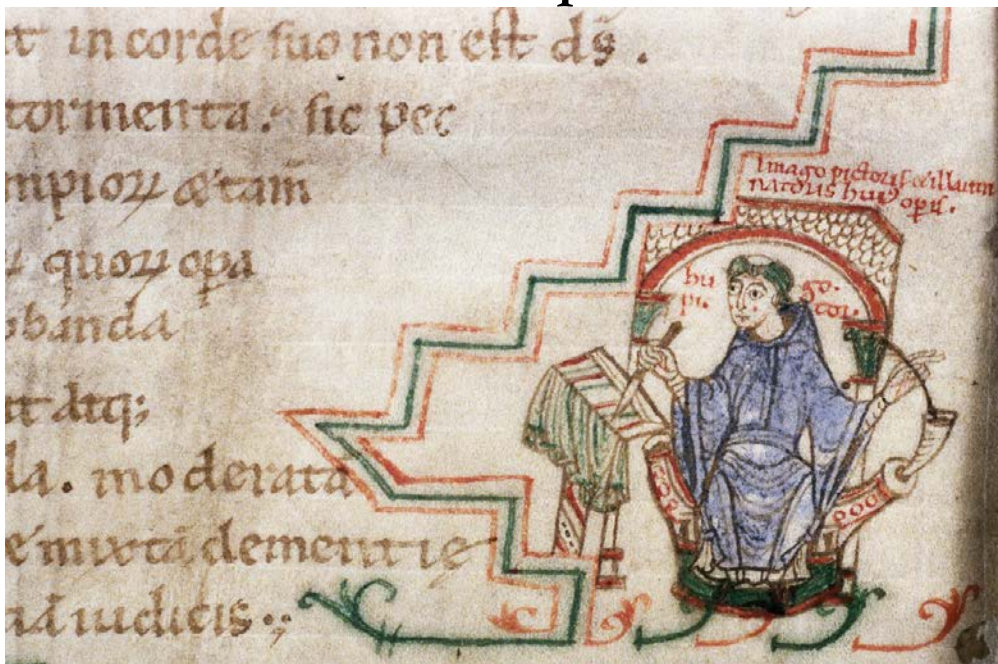 in corde suo non est ds.
tormenta. sic pec
impioꝝ & tam̄
quoꝝ opa
obanda
atq;
la. moderata
mixta dementię
iudicis.
Imago pictoris & illumi
natoris huiꝰ opis.
hu go.
pi. ctor.